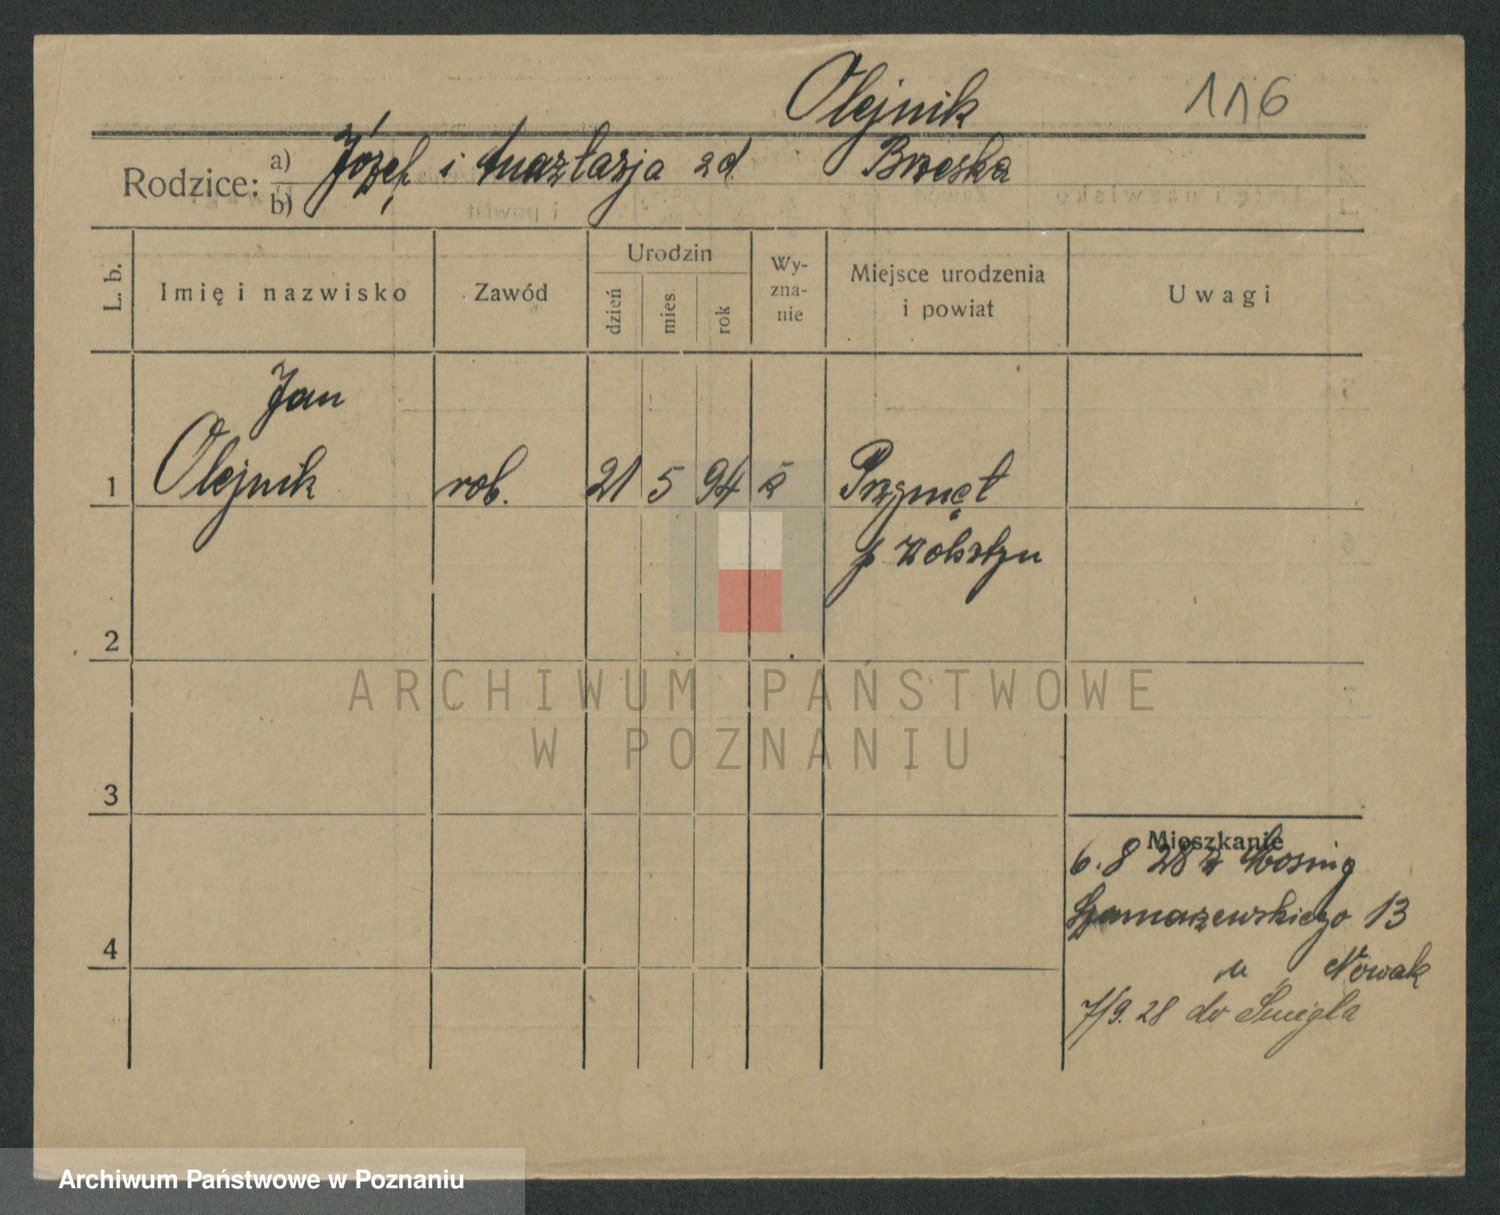 Olejnik 116
Rodzice: a) Józef i Anastazja zd Brzeska
b)
L. b. Imię i nazwisko Zawód Urodzin dzień mies rok Wy-zna-nie Miejsce urodzenia i powiat Uwagi
Jan
1 Olejnik rob. 21 5 94 k Przymęt
p Wolsztyn
2
3
4
Mieszkanie
6.8 28 z Mosiny
Szamarzewskiego 13
u Nowak
7/9.28 do Śmigla
ARCHIWUM PAŃSTWOWE
W POZNANIU
Archiwum Państwowe w Poznaniu